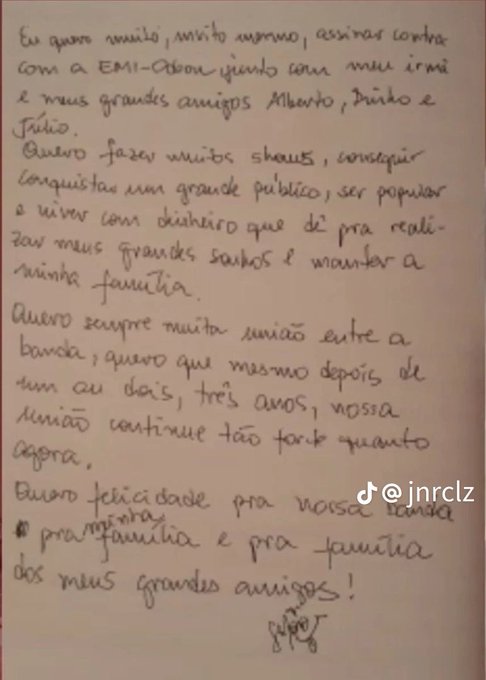 Eu quero muito, muito mesmo, assinar contra
com a EMI-Odeon, junto com meu irmã
e meus grandes amigos Alberto, Dinho e
Júlio.
Quero fazer muitos shows, conseguir
conquistar um grande público, ser popular
e viver com dinheiro que dê pra reali-
zar meus grandes sonhos e manter a
minha família.
Quero sempre muita união entre a
banda, quero que mesmo depois de
um ou dois, três anos, nossa
união continue tão forte quanto
agora.
Quero felicidade pra nossa banda
pra minha família e pra família
dos meus grandes amigos!
@jnrclz